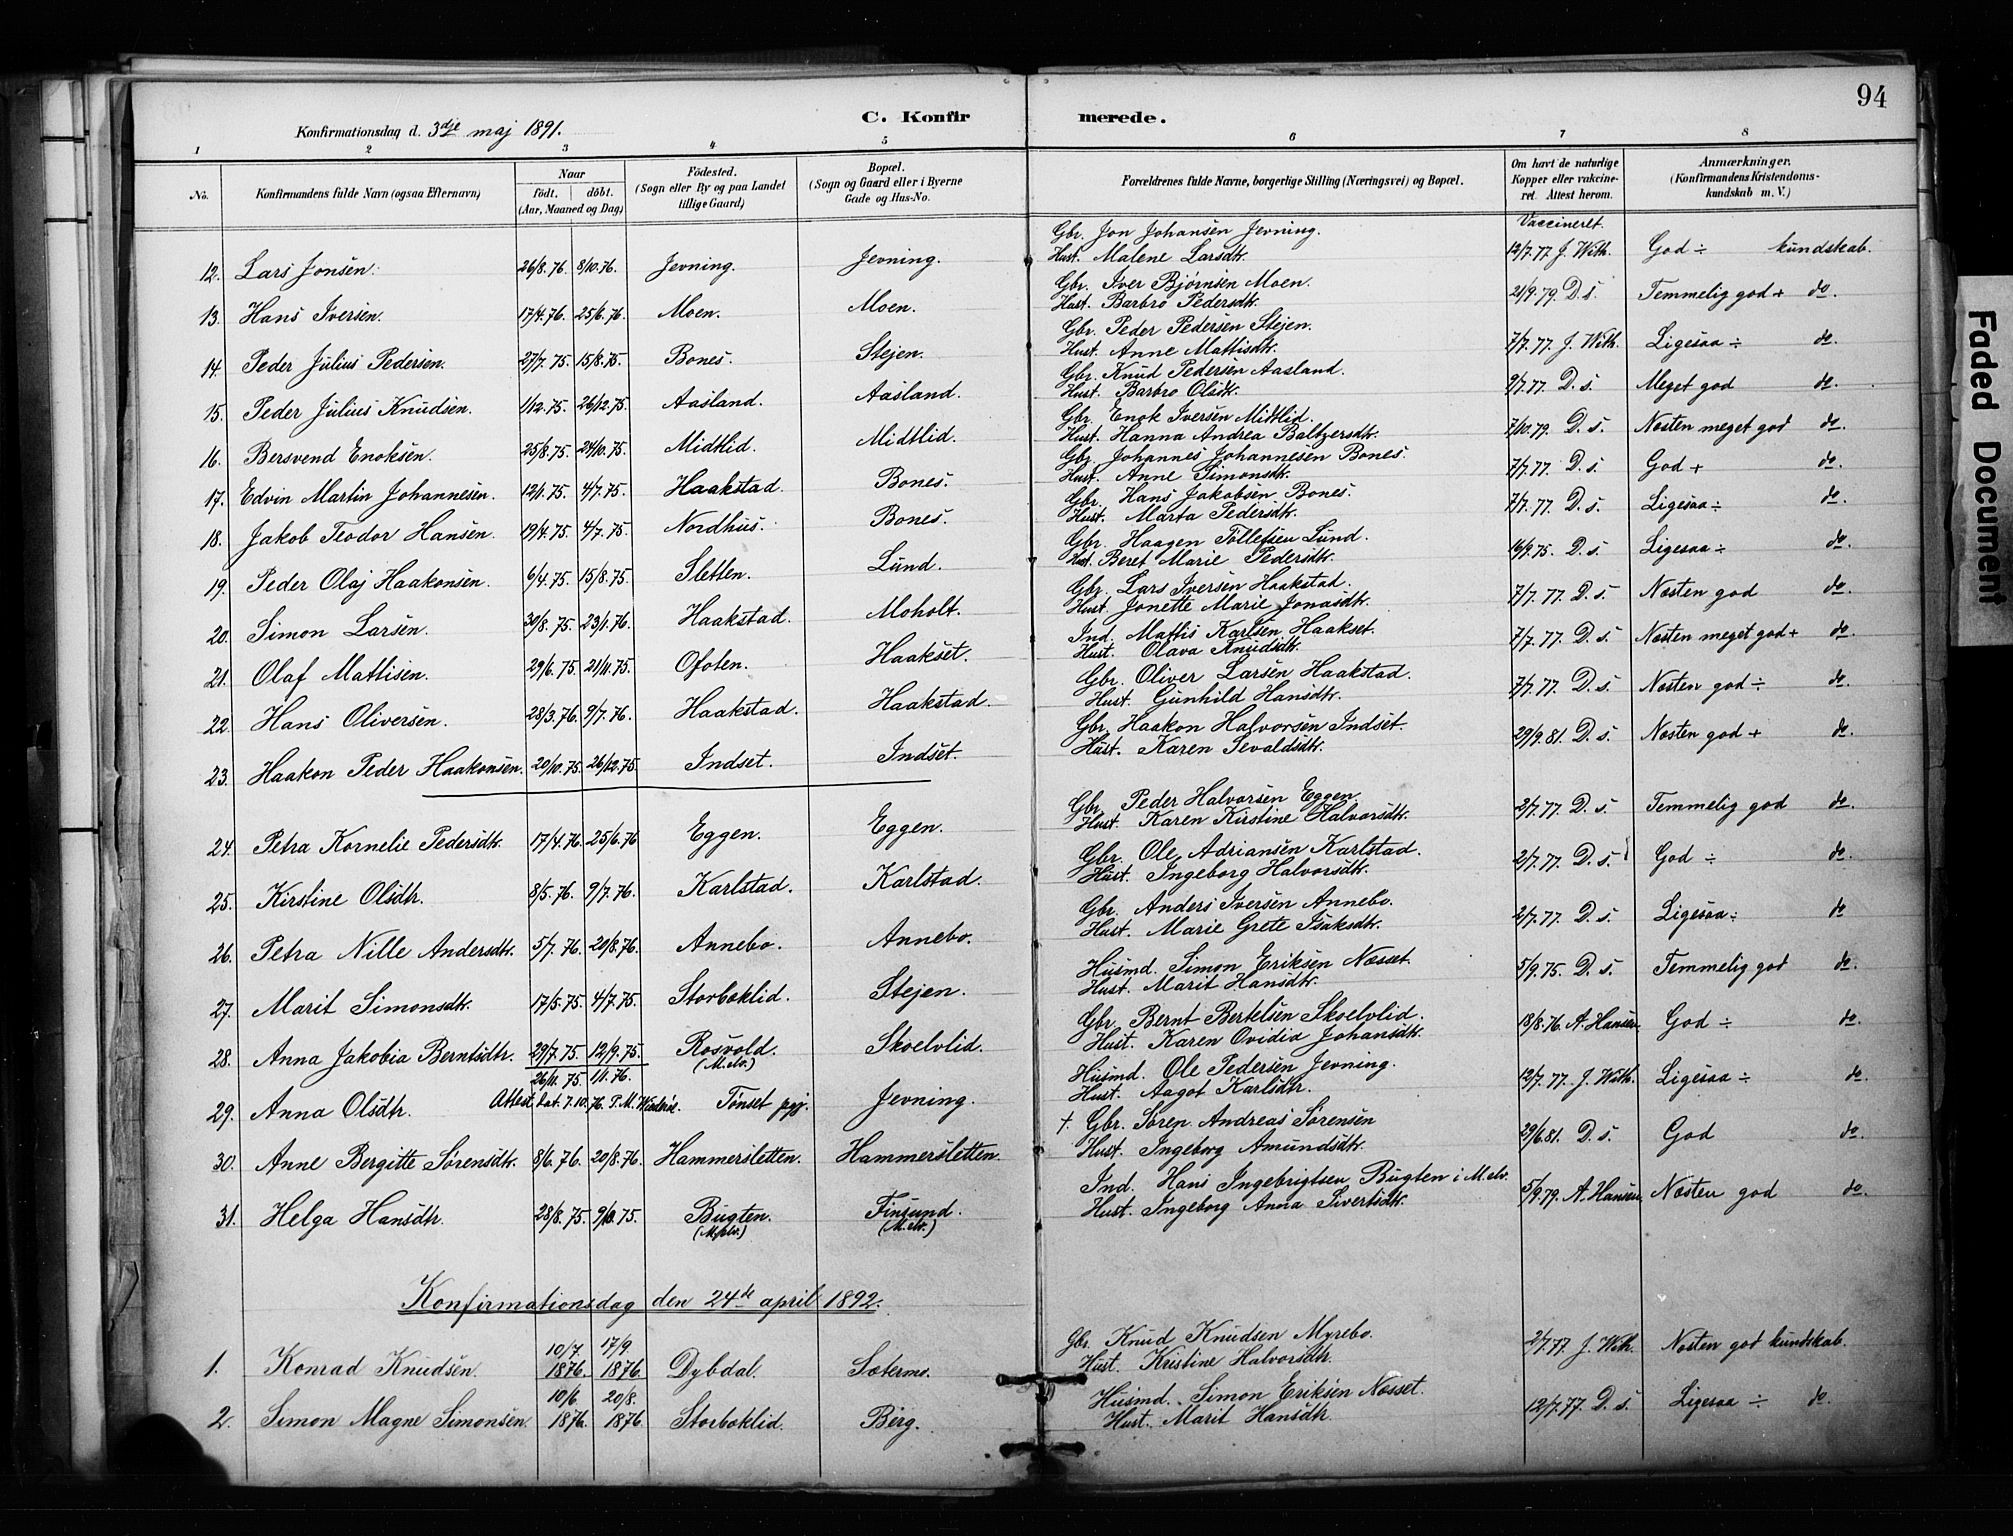 94
Konfirmationsdag d. 3dje maj 1891.
C. Konfirmerede.
1 2 3 4 5 6 7 8
No.
Konfirmandens fulde Navn (ogsaa Efternavn)
Naar født. døbt. (Aar, Maaned og Dag)
Fødested. (Sogn eller By og paa Landet tillige Gaard)
Bopæl. (Sogn og Gaard eller i Byerne Gade og Hus-No.
Forældrenes fulde Navne, borgerlige Stilling (Næringsvei) og Bopæl.
Om havt de naturlige Kopper eller vaccineret. Attest herom.
Anmærkninger. (Konfirmandens Kristendomskundskab m. V.)
Vaccineret.
12. Lars Jonsen. 26/8.76. 8/10.76. Jevning. Jevning. Gbr. Jon Johansen Jevning. Hust. Malene Larsdtr. 12/7.77 J. With. God ÷ kundskab.
13. Hans Iversen. 17/4.76. 25/6.76. Moen. Moen. Gbr. Iver Bjørnsen Moen. Hust. Barbro Pedersdtr. 21/9.79. D.s. Temmelig god + do.
14. Peder Julius Pedersen. 27/7.75. 15/8.75. Bones. Stejen. Gbr. Peder Pedersen Stejen. Hust. Anne Mattisdtr. 7/7.77 J. With. Ligesaa ÷ do.
15. Peder Julius Knudsen. 1/12.75. 26/12.75. Aasland. Aasland. Gbr. Knud Pedersen Aasland. Hust. Barbro Olsdtr. 9/7.77. D.s. Meget god do.
16. Bersvend Enoksen. 25/8.75. 24/10.75. Midtlid. Midtlid. Gbr. Enok Iversen Midtlid. Hust. Hanna Andrea Baltzersdtr. 7/10.79. D.s. Næsten meget god do.
17. Edvin Martin Johannesen. 12/1.75. 4/7.75. Haakstad. Bones. Gbr. Johannes Johannesen Bones. Hust. Anne Simonsdtr. 7/7.77. D.s. God + do.
18. Jakob Teodor Hansen. 19/4.75. 4/7.75. Nordhus. Bones. Gbr. Hans Jakobsen Bones. Hust. Marta Pedersdtr. 7/7.77. D.s. Ligesaa ÷ do.
19. Peder Olaj Haakonsen. 6/4.75. 15/8.75. Sletten. Lund. Gbr. Haagen Tollefsen Lund. Hust. Beret Marie Pedersdtr. 16/9.75. D.s. Ligesaa ÷ do.
20. Simon Larsen. 30/8.75. 23/1.76. Haakstad. Moholt. Gbr. Lars Iversen Haakstad. Hust. Jonette Marie Jonasdtr. 7/7.77. D.s. Næsten god do.
21. Olaf Mattisen. 29/6.75. 21/11.75. Ofoten. Haakset. Ind. Mattis Karlsen Haakset. Hust. Olava Knudsdtr. 7/7.77. D.s. Næsten meget god + do.
22. Hans Oliversen. 28/3.76. 9/7.76. Haakstad. Haakstad. Gbr. Oliver Larsen Haakstad. Hust. Gunhild Hansdtr. 7/7.77. D.s. Næsten god ÷ do.
23. Haakon Peder Haakonsen. 20/10.75. 26/12.75. Indset. Indset. Gbr. Haakon Halvorsen Indset. Hust. Karen Sevaldsdtr. 29/9.81. D.s. Næsten god + do.
24. Petra Kornelie Pedersdtr. 17/4.76. 25/6.76 Eggen. Eggen. Gbr. Peder Halvorsen Eggen. Hust. Karen Kirstine Halvorsdtr. 2/7.77. D.s. Temmelig god do.
25. Kirstine Olsdtr. 8/5.76. 9/7.76. Karlstad. Karlstad. Gbr. Ole Adriansen Karlstad. Hust. Ingeborg Halvorsdtr. 2/7.77. D.s. God ÷ do.
26. Petra Nille Andersdtr. 5/7.76. 20/8.76. Annebo. Annebo. Gbr. Anders Iversen Annebo. Hust. Marie Grete Isaksdtr. 2/7.77. D.s. Ligesaa ÷ do
27. Marit Simonsdtr. 17/5.75. 4/7.75. Storbæklid. Stejen. Husmd. Simon Eriksen Næsset. Hust. Marit Hansdtr. 5/9.75. D.s. Temmelig god do.
28. Anna Jakobia Berntsdtr. 29/7.75. 12/9.75. Rosvold. (M.elv.) Skoelvlid. Gbr. Bernt Bertelsen Skoelvlid. Hust. Karen Ovidia Johansdtr. 18/8.76. A. Hansen. God ÷ do.
29. Anna Olsdtr. 26/11.75 1/1.76. Attest dat. 7.10.76. P.M. Tønset pgj. Jevning. Husmd. Ole Pedersen Jevning. Hust. Aagot Karlsdtr. 12/7.77. J. With. Ligesaa ÷ do.
30. Anne Bergitte Sørensdtr. 8/6.76. 20/8.76. Hammersletten. Hammersletten. †. Gbr. Søren Andreas Sørensen Hust. Ingeborg Amundsdtr. 29/6.81. D.s. God do.
31. Helga Hansdtr. 28/8.75. 9/10.75. Bugten. (M.elv.) Finsund. (M.elv.) Ind. Hans Ingebrigtsen Bugten i M.elv. Hust. Ingeborg Anna Sivertsdtr. 5/9.79. A. Hansen. Næsten god do.
Konfirmationsdag den 24de april 1892.
1. Konrad Knudsen. 10/7. 1876. 17/9. 1876. Dybdal. Sætermo. Gbr. Knud Knudsen Myrebo. Hust. Kristine Halvorsdtr. 2/7.77. J. With. Næsten god kundskab.
2. Simon Magne Simonsen. 10/6 1876. 20/8. 1876. Storbæklid. Berg. Husmd. Simon Eriksen Næsset. Hust. Marit Hansdtr. 12/7.77. D.s. Ligesaa ÷ do.
Faded Document